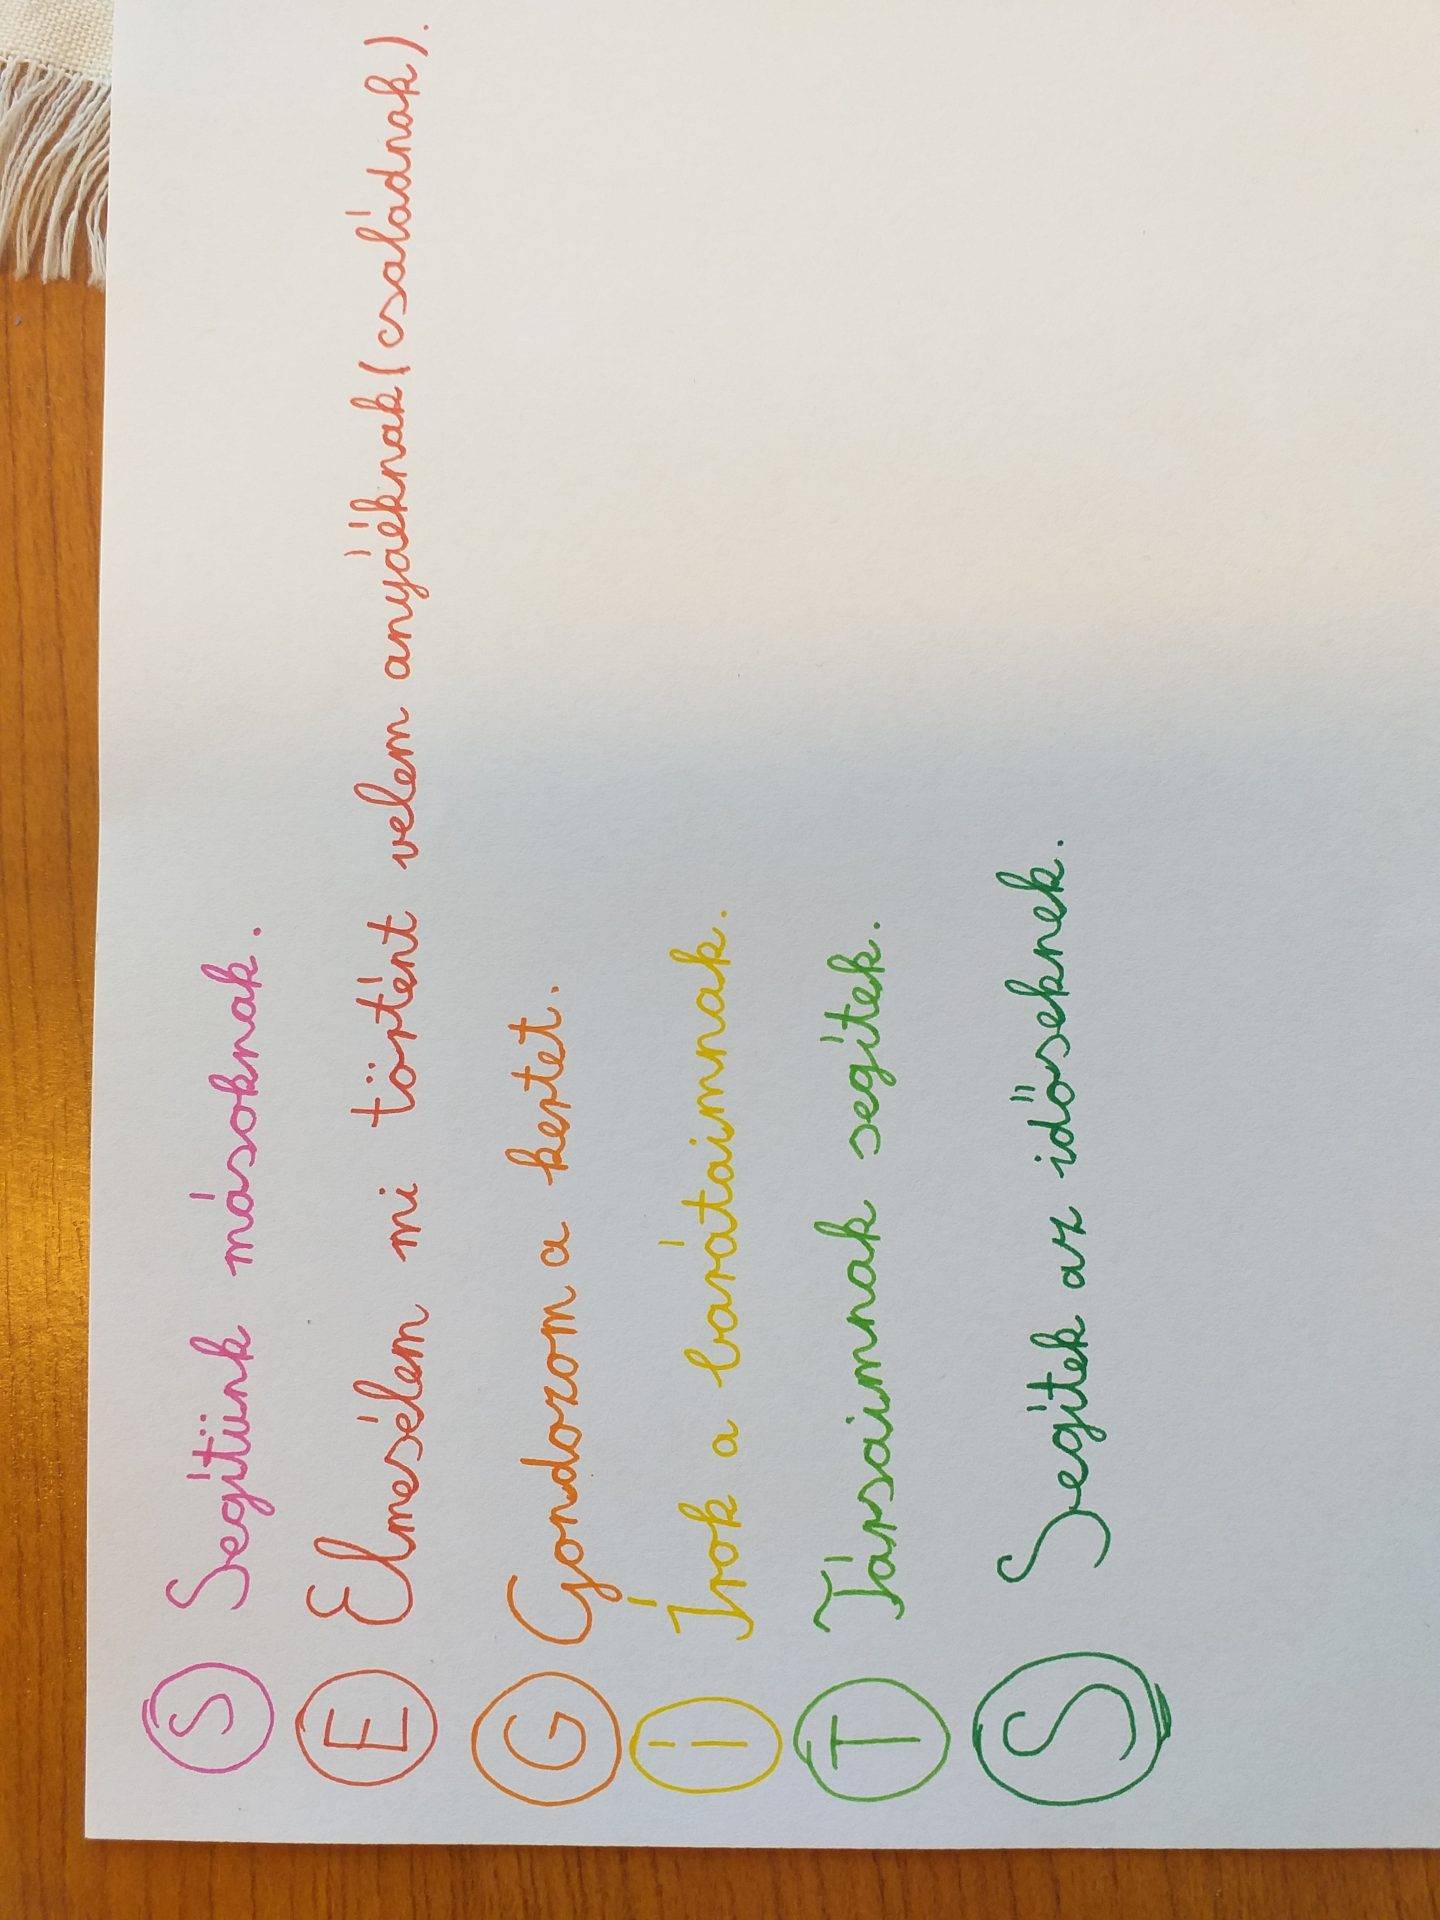 S Segítünk másoknak.
E Elmesélem mi történt velem anyáéknak (családnak).
G Gondozom a kertet.
Í Írok a barátaimnak.
T Társaimnak segítek.
S Segítek az időseknek.